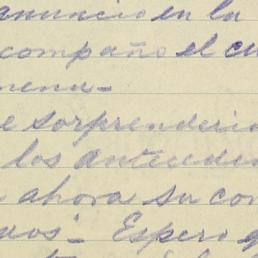 anuncio en la
compaño el cu
mena-
e sorprenderia
los anteceden
ahora su con
uos"- Espero q